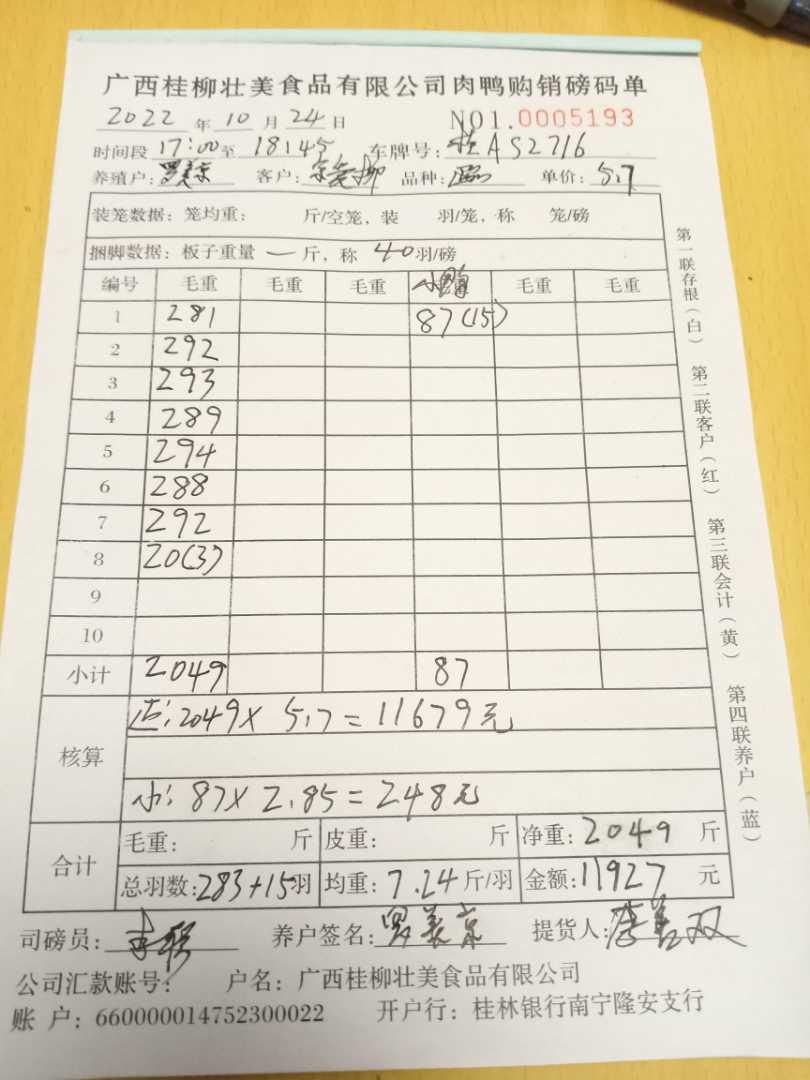 广西桂柳壮美食品有限公司肉鸭购销磅码单
2022年10月24日 NO1.0005193
时间段17:00至18:45 车牌号:桂AS2716
养殖户:罗美京 客户: 品种: 单价:5.7
装笼数据:笼均重: 斤/空笼,装 羽/笼,称 笼/磅
捆脚数据:板子重量一斤,称40羽/磅
编号 毛重 毛重 毛重 小鸭 毛重 毛重
1 281 87(15)
2 292
3 293
4 289
5 294
6 288
7 292
8 20(3)
9
10
小计 2049 87
核算
正:2049×5.7=11679元
小:87×2.85=248元
合计
毛重: 斤 皮重: 斤 净重:2049斤
总羽数:283+15羽 均重:7.24斤/羽 金额:11927元
司磅员: 养户签名:罗美京 提货人:李美双
公司汇款账号: 户名:广西桂柳壮美食品有限公司
账 户:660000014752300022 开户行:桂林银行南宁隆安支行
第一联存根(白) 第二联客户(红) 第三联会计(黄) 第四联养户(蓝)